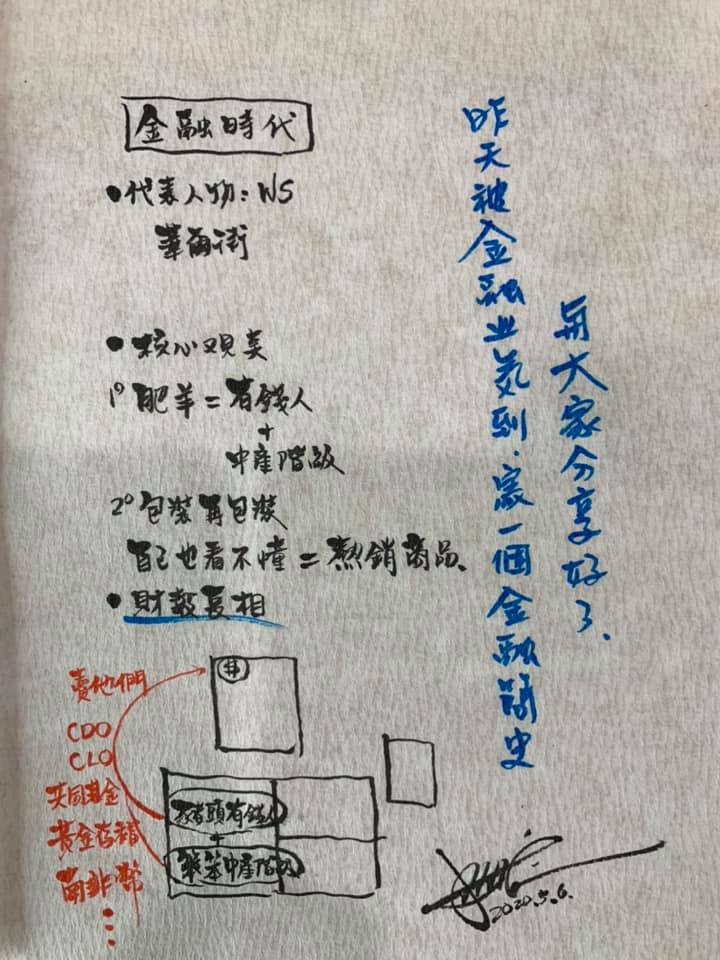 金融時代
•代表人物：WS
華爾街
•核心觀美
1° 肥羊＝有錢人
+
中產階級
2° 包裝再包裝
自己也看不懂＝熱銷商品、
•財報真相
$
賣他們
CDO
CLO
共同基金
黃金存摺
南非幣
⋮
豬頭有錢人
+
歎笨中產階級
昨天被金融业氣到，寫一個金融簡史
與大家分享好了、
2020.5.6.